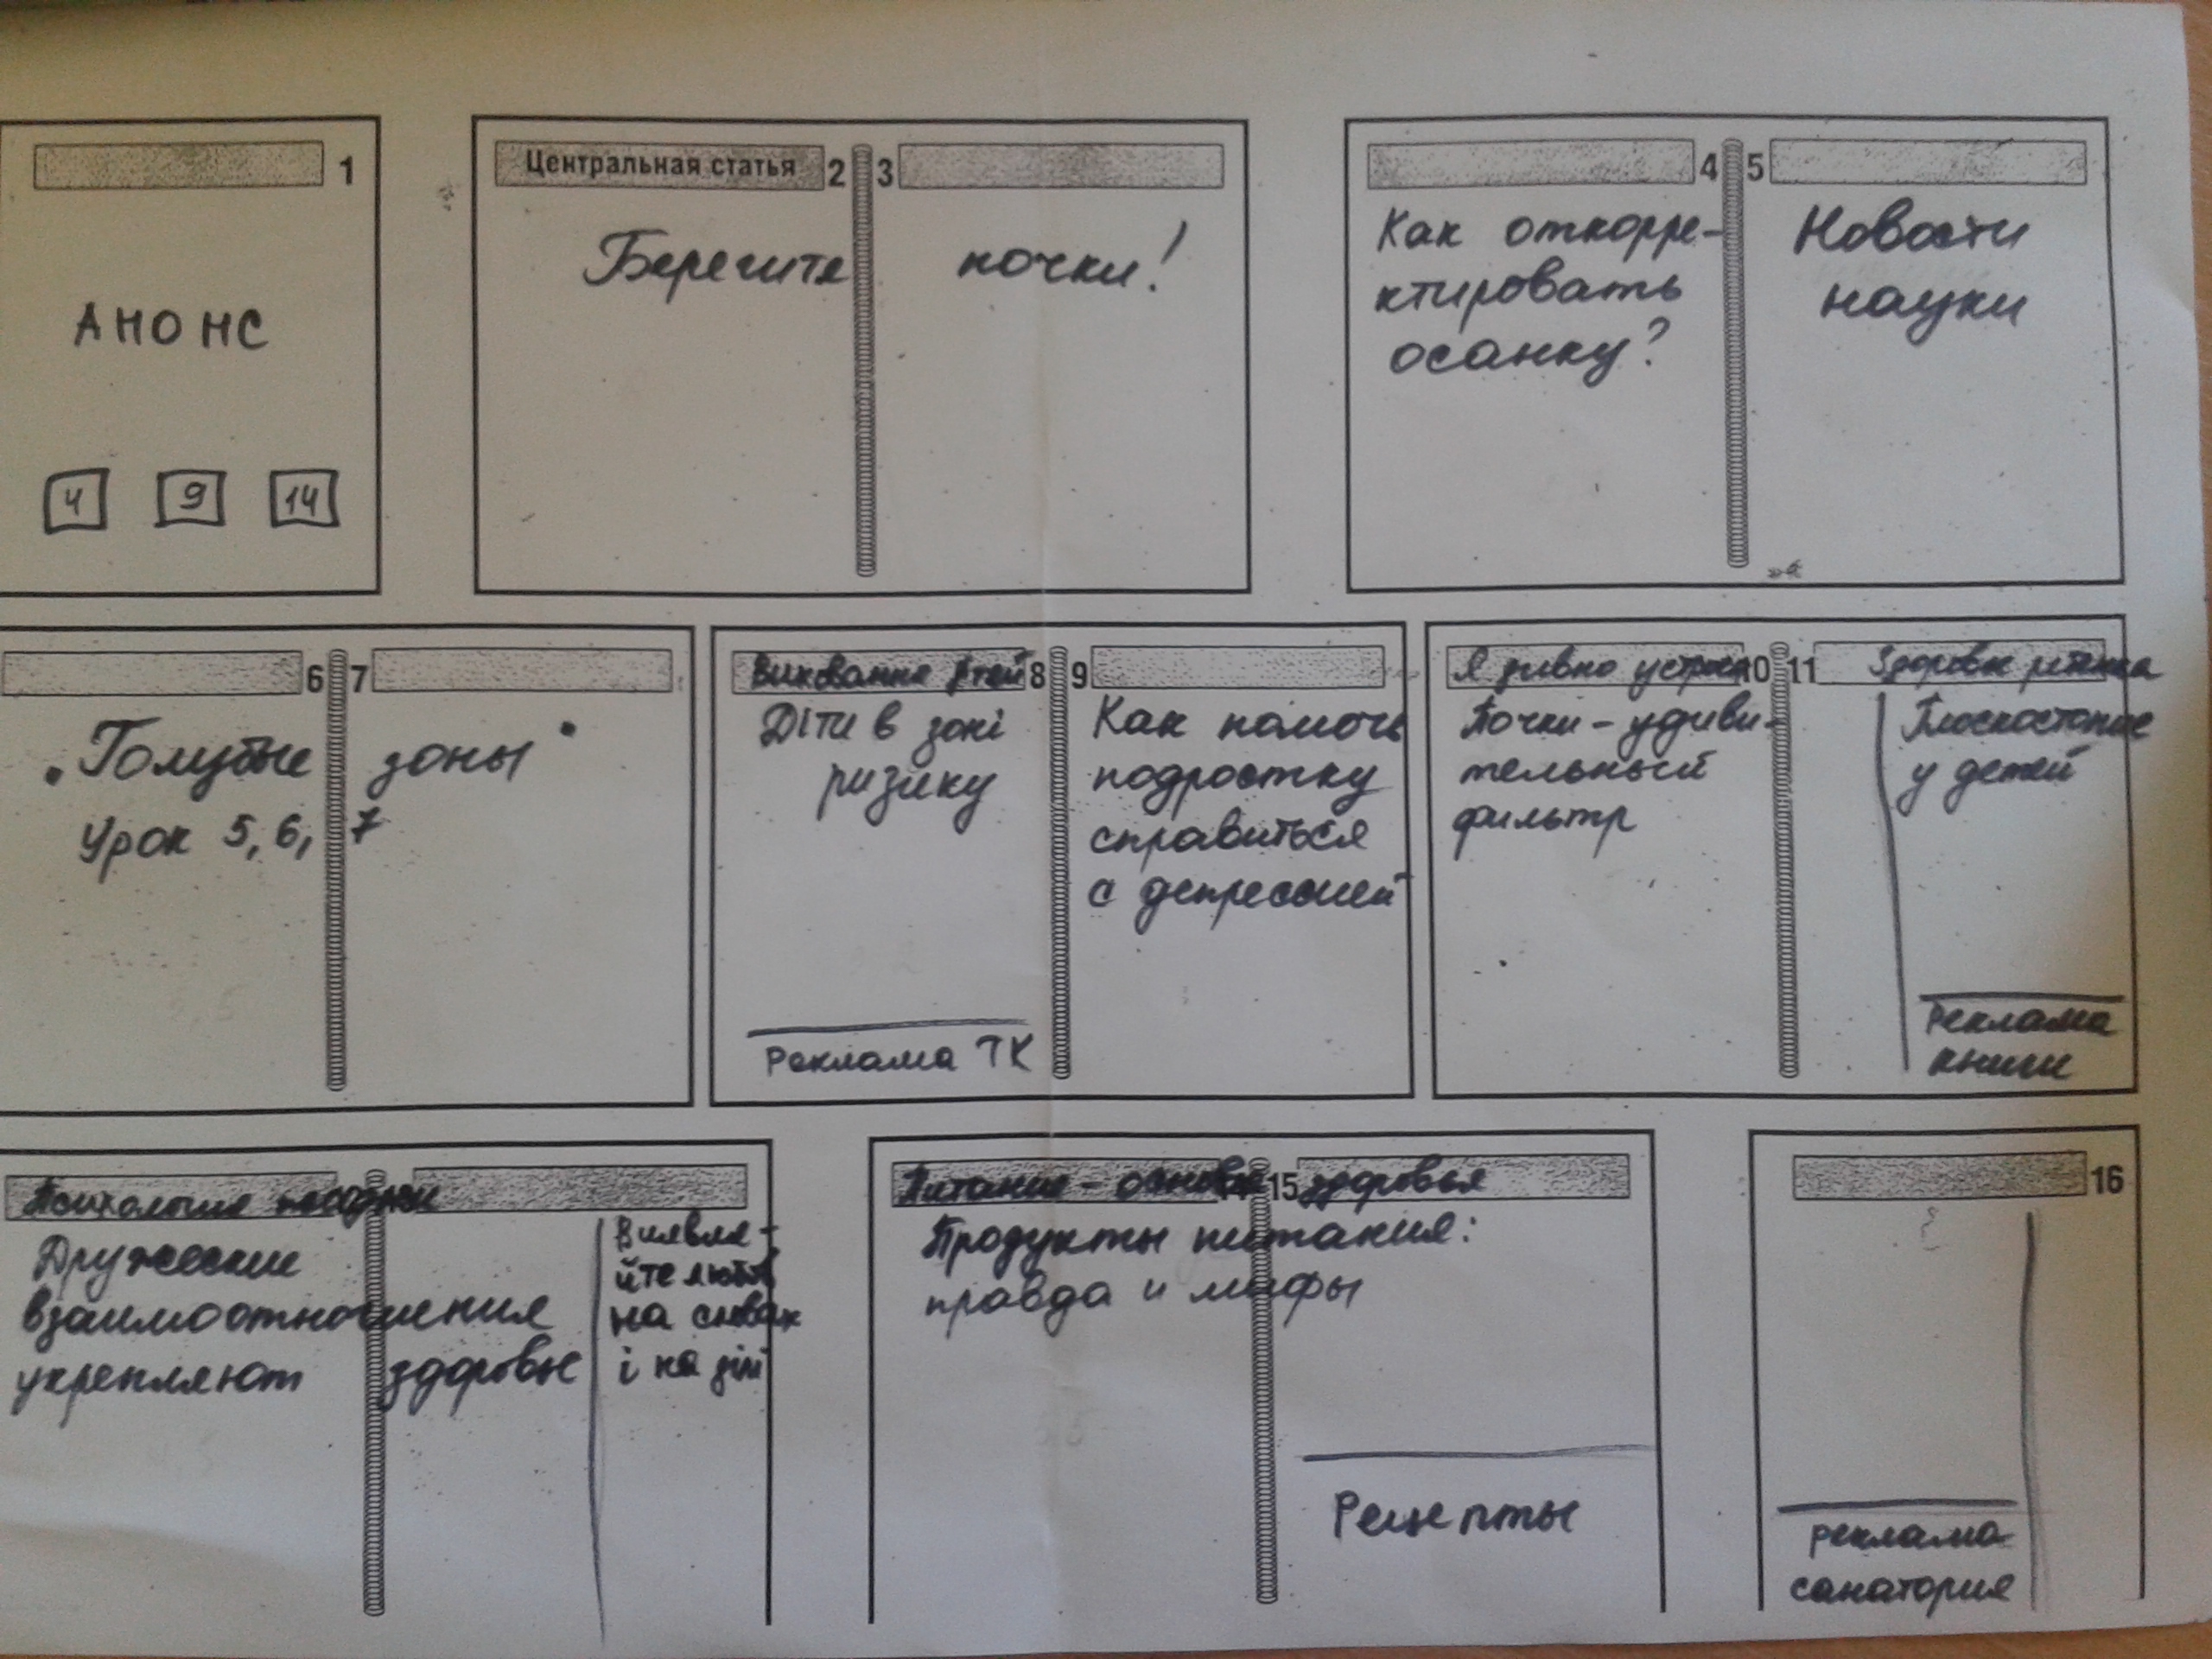 1
Анонс
4 9 14
Центральная статья 2 3
Берегите почки!
4 5
Как откорре-
ктировать
осанку?
Новости
науки
6 7
"Голубые зоны"
Урок 5, 6, 7
Виховання дітей 8 9
Діти в зоні
ризику
Реклама ТК
Как помочь
подростку
справиться
с депрессией
Я дивно устроен 10 11 Здоровье ребенка
Почки - удиви-
тельный
фильтр
Плоскостопие
у детей
Реклама
книги
Психология
Дружеские
взаимоотношения
укрепляют здоровье
Виявля-
йте любов
на словах
і на ділі
Питание - основа 15 здоровья
Продукты питания:
правда и мифы
Рецепты
16
реклама
санатория